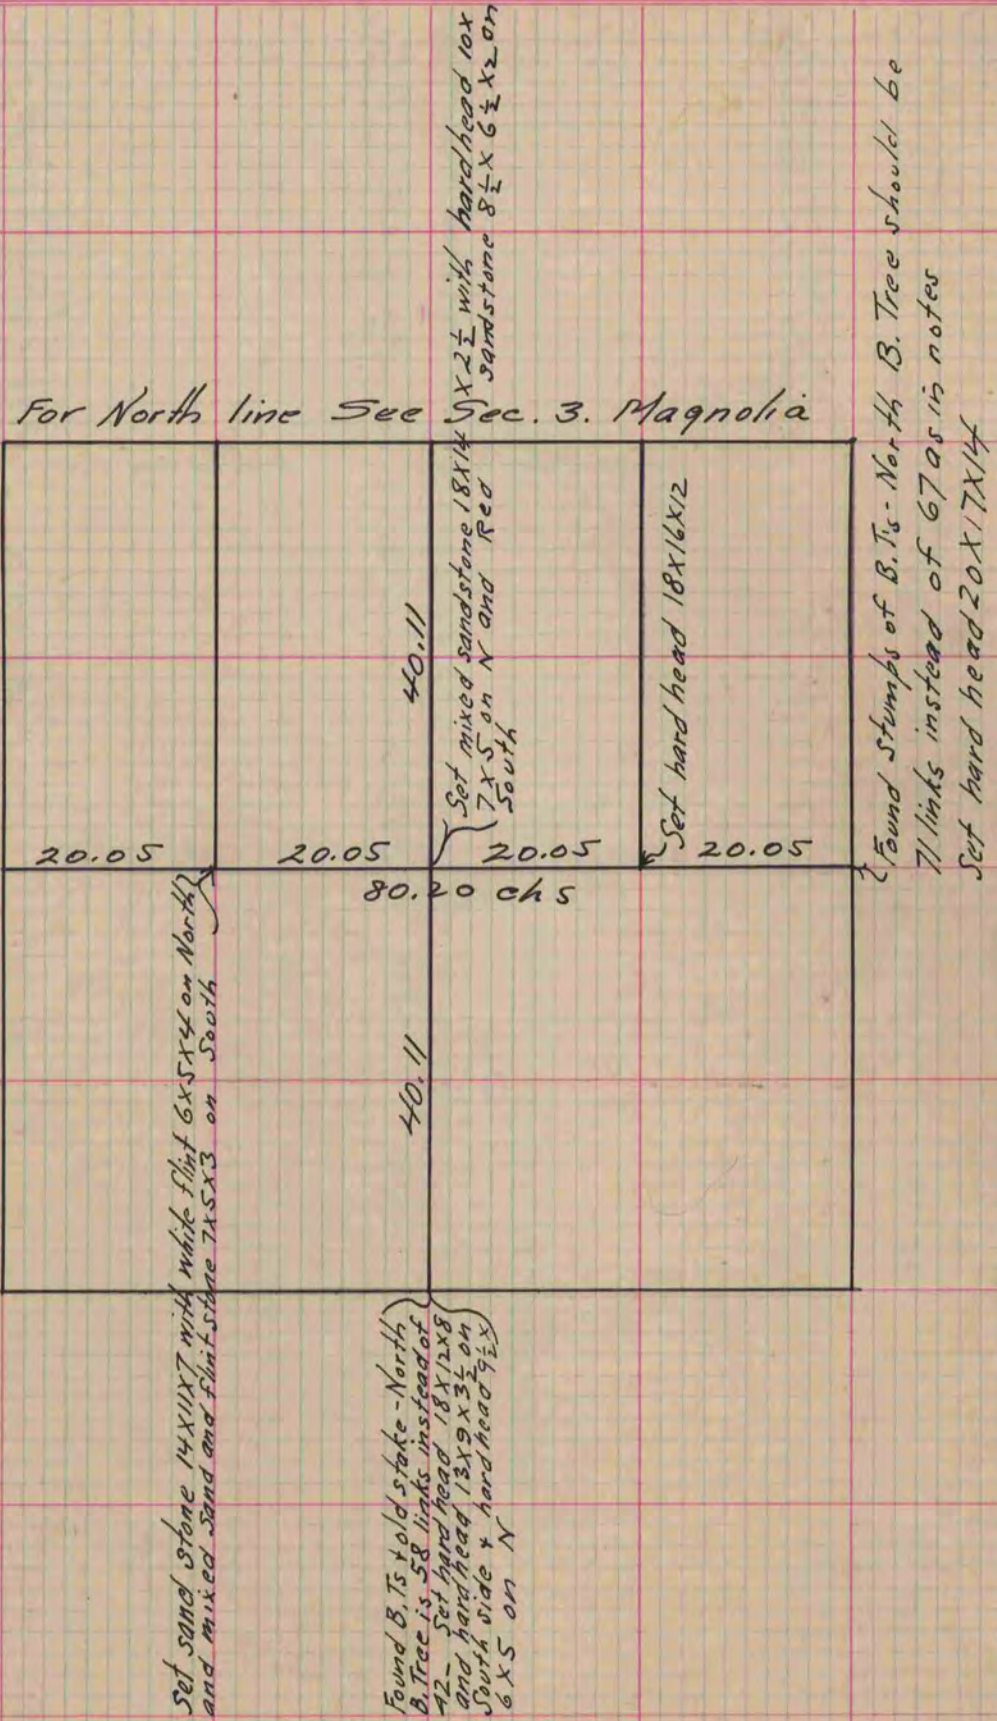 Set mixed sandstone 18X14 X 2½ with hardhead 10x
7X5 on N and Red sandstone 8½ X 6½ X2 on
South
For North line See Sec. 3. Magnolia
40.11
Set hard head 18X16X12
Found Stumps of B.Ts - North B. Tree should be
71 links instead of 67 as in notes
Set hard head 20X17X14
20.05
20.05
20.05
20.05
80.20 chs
40.11
Set sand stone 14X11X7 with white flint 6X5X4 on North
and mixed sand and flint stone 7X5X3 on South
Found B.Ts + old stake - North
B. Tree is 58 links instead of
42 - Set hard head 18X12X8
and hardhead 13X9X3½ on
South side + hardhead 9½X
6X5 on N